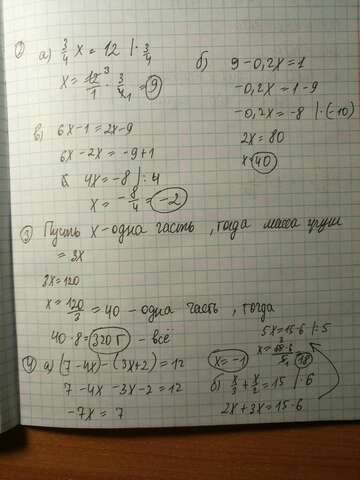 ① а) 3/4 x = 12 | · 3/4
x = 12³/1 · 3/4₁ = 9
б) 9 - 0,2x = 1
-0,2x = 1 - 9
-0,2x = -8 | · (-10)
2x = 80
x = 40
в) 6x - 1 = 2x - 9
6x - 2x = -9 + 1
4x = -8 | : 4
x = -8/4 = -2
② Пусть x - одна часть, тогда масса груш
= 3x
3x = 120
x = 120/3 = 40 - одна часть, тогда
40 · 8 = 320 г - всё
④ а) (7 - 4x) - (3x + 2) = 12
7 - 4x - 3x - 2 = 12
-7x = 7
x = -1
б) x/3 + x/2 = 15 | · 6
2x + 3x = 15 · 6
5x = 15 · 6 | : 5
x = 15³ · 6/5₁ = 18